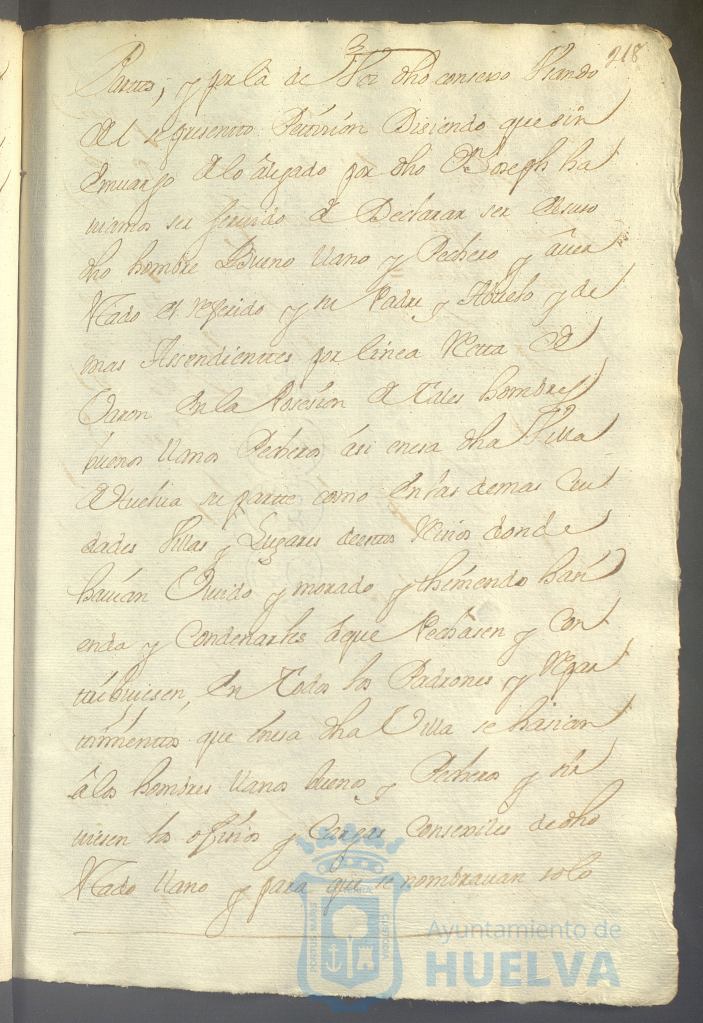 218
Partes, y por la de dho consexo
se presento Peticion Disiendo que sin
Emvargo de lo alegado por dho Dn Joseph ha
viamos ser servido de Declarar ser el suso
dho hombre Bueno llano y Pechero y aver
estado el referido y su Padre y Abuelo y de
mas Assendientes por linea Recta de
Varon En la Posesion de tales hombres
buenos llanos Pecheros asi en esa dha Villa
de Huelva su parte como En las demas Ciu
dades Villas y Lugares destos Reinos donde
havian Vivido y morado y theniendo hasi
enda y Condenarles a que Pechasen y Con
tribuiesen, En Todos los Padrones y Repar
timientos que en esa dha Villa se hasian
a los hombres llanos buenos y Pecheros y sir
viesen los ofisios y Cargas Consexiles de dho
estado llano y para que se nombravan solo
PORTUS MARIS
CUSTODIA
Ayuntamiento de
HUELVA